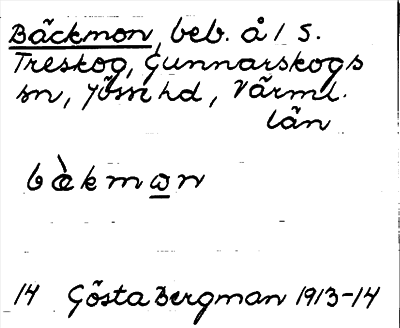 Bäckmon, beb. å 1 S.
Treskog, Gunnarskogs
sn, Jösse hd, Värml.
län
bàkmωn
14 Gösta Bergman 1913-14